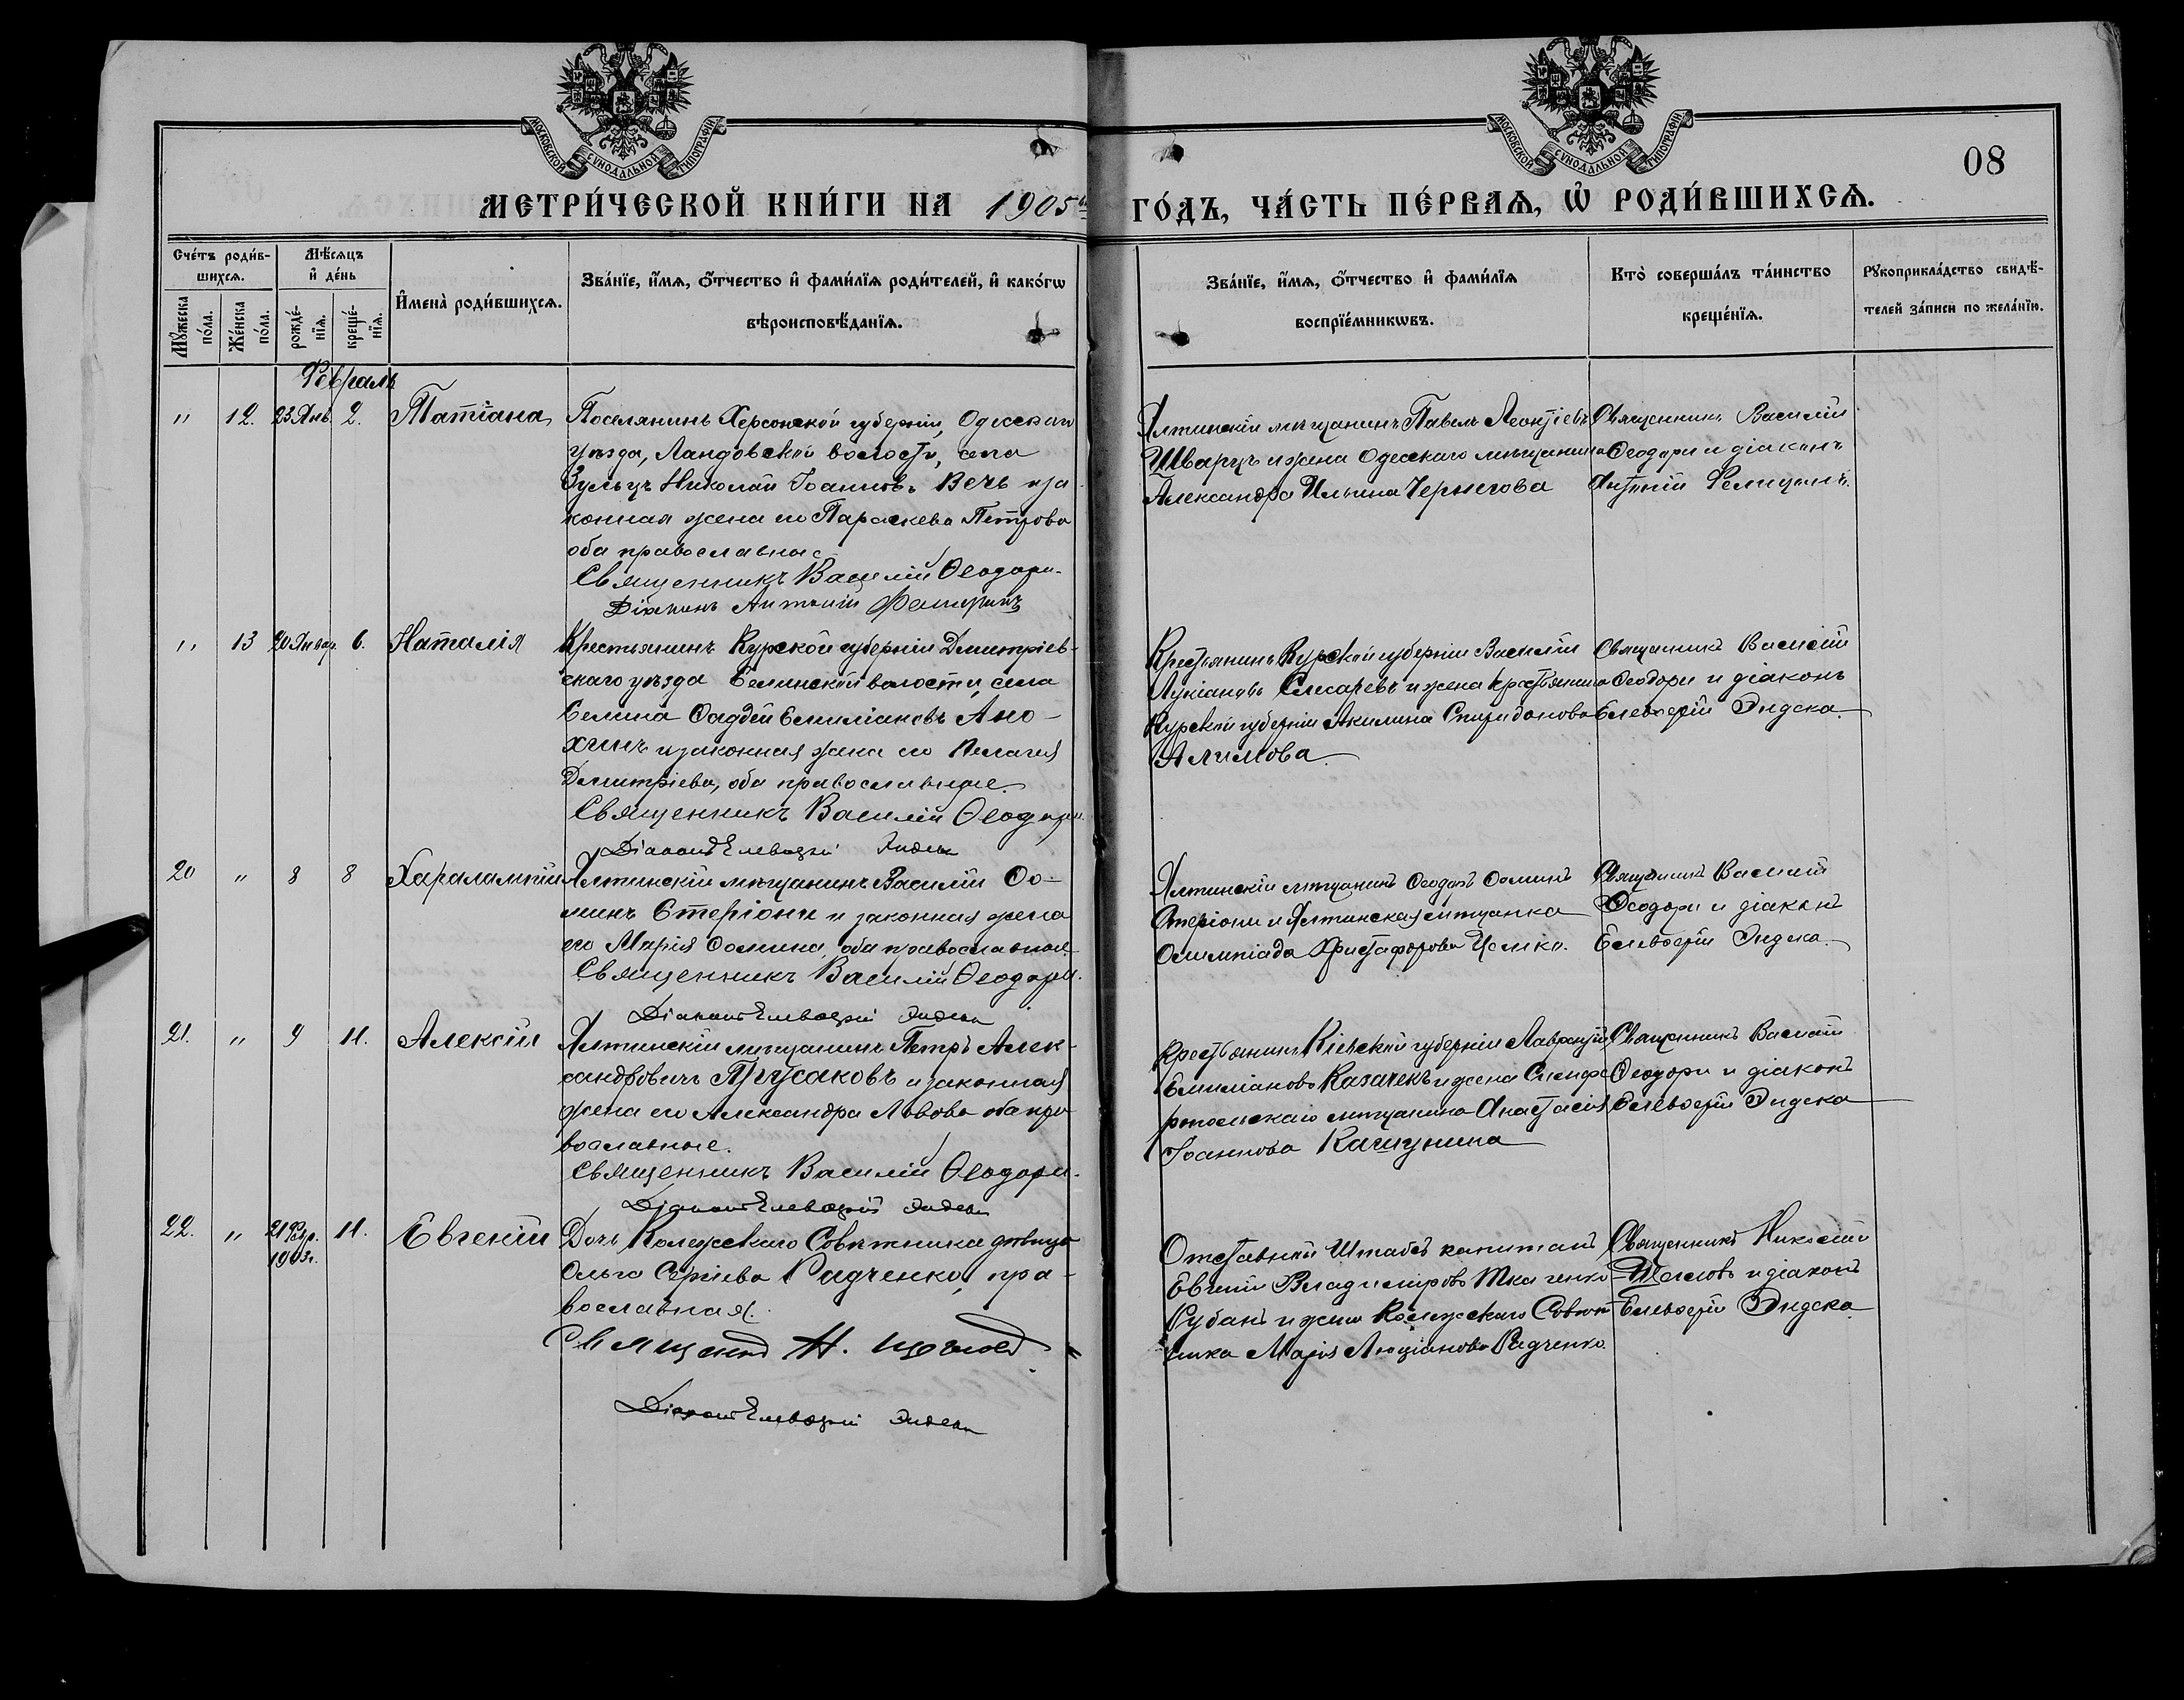 МОСКОВСКОЙ СѴНОДАЛЬНОЙ ТИПОГРАФІИ
МОСКОВСКОЙ СѴНОДАЛЬНОЙ ТИПОГРАФІИ
08
МЕТРИ́ЧЕСКОЙ КНИ́ГИ НА 1905й ГО́ДЪ, ЧА́СТЬ ПЕ́РВАѦ, Ѡ҆ РОДИ́ВШИХСѦ.
Сче́тъ роди́в-
шихсѧ.
Мꙋ́жеска по́ла.
Же́нска по́ла.
Мѣ́сѧцъ и҆ де́нь
рожде́-нїѧ.
креще́-нїѧ.
И҆мена̀ роди́вшихсѧ.
Зва́нїе, и҆́мѧ, ѻ҆́тчество и҆ фами́лїѧ роди́телей, и҆ како́гѡ
вѣроисповѣ́данїѧ.
Зва́нїе, и҆́мѧ, ѻ҆́тчество и҆ фами́лїѧ
воспрїе́мникѡвъ.
Кто̀ соверша́лъ та́инство
креще́нїѧ.
Рꙋкоприкла́дство свидѣ́-
телей за́писи по жела́нїю.
Февраль
" 12. 23 Янв. 2. Татіана
Поселянинъ Херсонской губерніи, Одесскаго
уѣзда, Ландовской волости, села
Зульцъ Николай Іоанновъ Вечь и за
конная жена его Параскева Петрова
оба православные
Священникъ Василій Ѳеодори.
Діаконъ Антоній
Ялтинскій мѣщанинъ Павелъ Леонтіевъ
Шварцъ и жена Одесскаго мѣщанина
Александра Ильина Чернегова
Священникъ Василій
Ѳеодори и діаконъ
Антоній
" 13 30 Январ. 6. Наталія
Крестьянинъ Курской губерніи Дмитріев-
скаго уѣзда Селинской волости, села
Селина Ѳаддей Емиліановъ Ано-
хинъ и законная жена его Пелагія
Дмитріева, оба православные.
Священникъ Василій Ѳеодори.
Діаконъ Елевѳерій Эндека
Крестьянинъ Курской губерніи Василій
Лукіановъ Слесаревъ и жена крестьянина
Курской губерніи Акилина Спиридонова
Алимова.
Священникъ Василій
Ѳеодори и діаконъ
Елевѳерій Эндека.
20 " 8 8 Харалампій
Ялтинскій мѣщанинъ Василій Ѳо-
минъ Стеріони и законная жена
его Марія Ѳомина, оба православные.
Священникъ Василій Ѳеодори.
Діаконъ Елевѳерій Эндека
Ялтинскій мѣщанинъ Ѳеодоръ Ѳоминъ
Стеріони и Ялтинская мѣщанка
Олимпіада Христофорова Целико.
Священникъ Василій
Ѳеодори и діаконъ
Елевѳерій Эндека.
21. " 9 11. Алексій
Ялтинскій мѣщанинъ Петръ Алек-
сандровичъ и законная
жена его Александра Львова оба пра
вославные.
Священникъ Василій Ѳеодори.
Діаконъ Елевѳерій Эндека
Крестьянинъ Кіевской губерніи Лаврентій
Емиліановъ Казачекъ и жена Симфе
ропольскаго мѣщанина Анастасія
Іоаннова Качигунина
Священникъ Василій
Ѳеодори и діаконъ
Елевѳерій Эндека
22. " 21 Февр. 1903г. 11. Евгеній
Дочь Коллежскаго Совѣтника дѣвица
Ольга Сергіева Радченко, пра-
вославная.
Священникъ Н. Щегловъ
Діаконъ Елевѳерій Эндека
Отставной Штабсъ капитанъ
Евгеній Владиміровъ Ткаченко-
Рубанъ и жена Коллежскаго Совѣт-
ника Марія Люціанова Радченко.
Священникъ Николай
Щегловъ и діаконъ
Елевѳерій Эндека